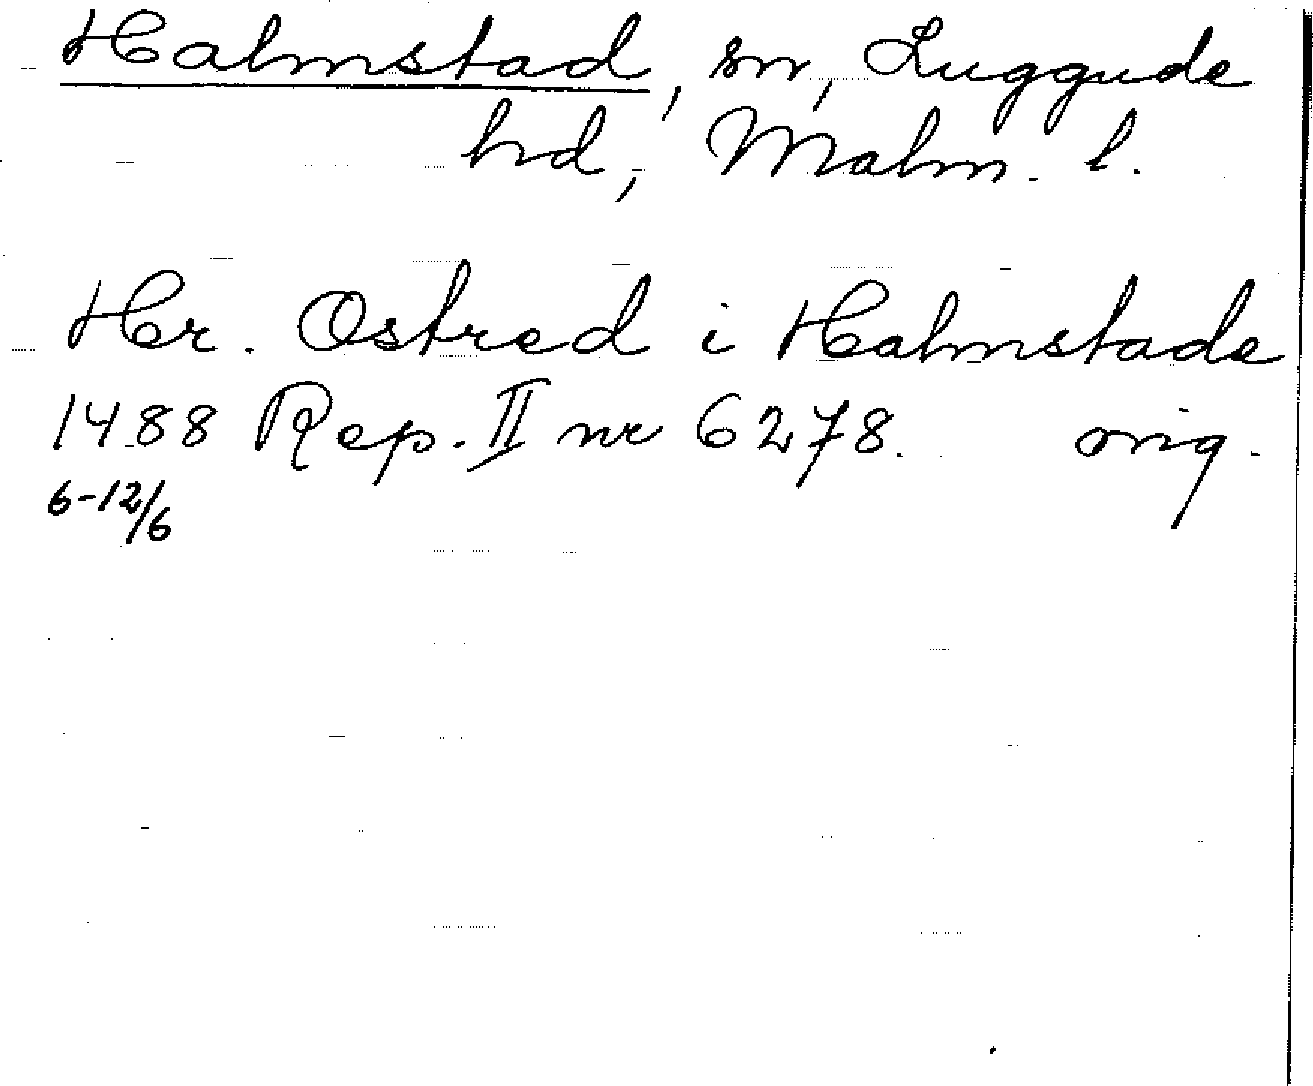 Halmstad, sn, Luggude
hd, Malm. l.
Hr. Ostred i Halmstade
1488 Rep. II nr 6278. orig.
6-12/6